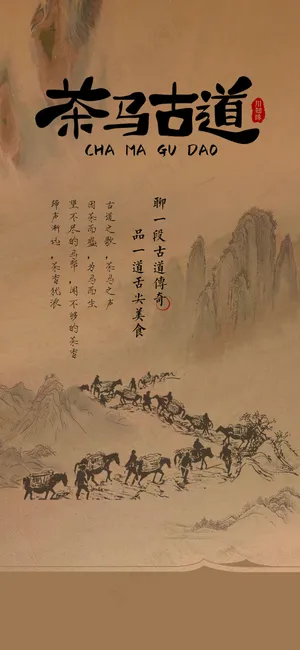 茶马古道
川西味
CHA MA GU DAO
聊一段古道傳奇
品一道舌尖美食
古道之歌，茶馬之声
因茶而盛，为马而生
望不尽的马帮，闻不够的茶香
蹄声渐远，茶香犹浓